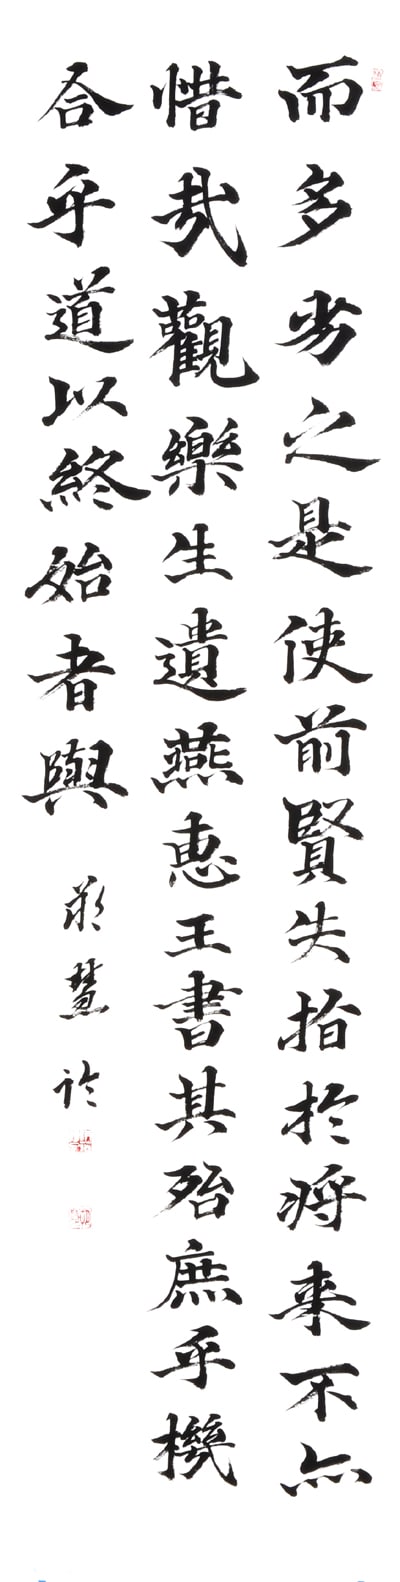 而多劣之是使前賢失指於将来不亦
惜哉觀樂生遺燕恵王書其殆庶乎機
合乎道以終始者與
慧